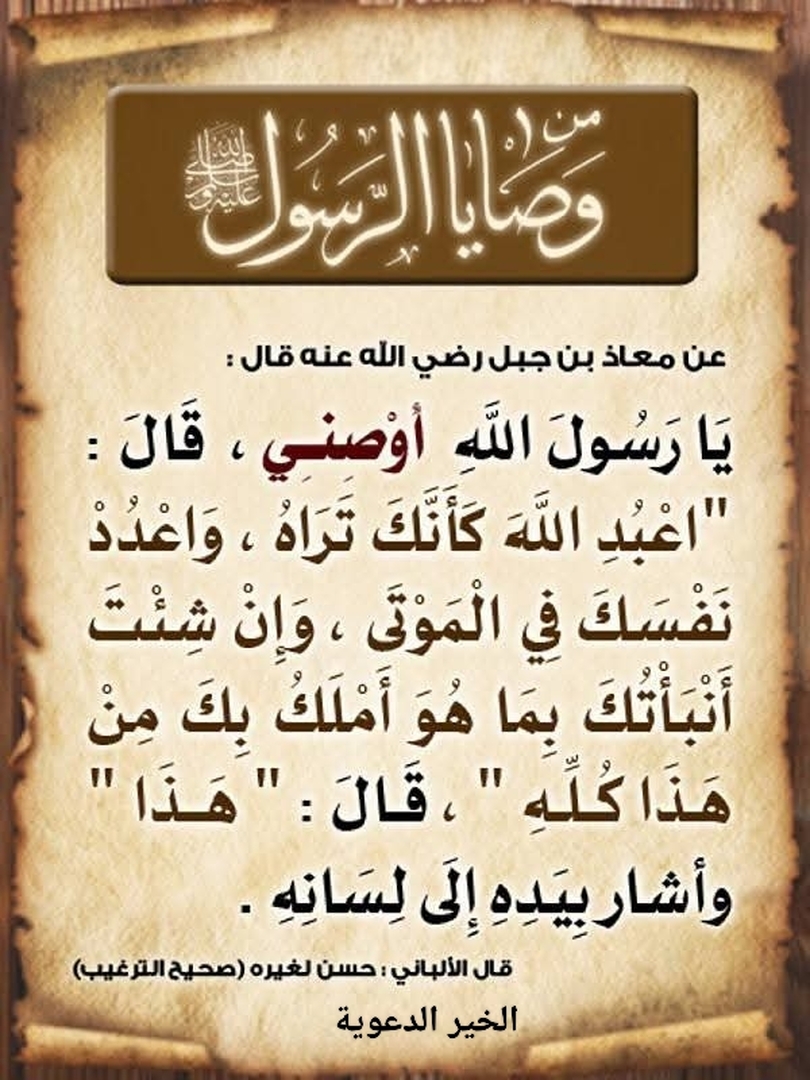 من وصايا الرسول صلى الله عليه وسلم
عن معاذ بن جبل رضي الله عنه قال :
يَا رَسُولَ اللَّهِ أوْصِنِي ، قَالَ :
"اعْبُدِ اللَّهَ كَأَنَّكَ تَرَاهُ ، وَاعْدُدْ
نَفْسَكَ فِي الْمَوْتَى ، وَإِنْ شِئْتَ
أَنْبَأْتُكَ بِمَا هُوَ أَمْلَكُ بِكَ مِنْ
هَذَا كُلِّهِ " ، قَالَ : " هَذَا "
وأشار بِيَدِهِ إِلَى لِسَانِهِ .
قال الألباني : حسن لغيره (صحيح الترغيب)
الخير الدعوية